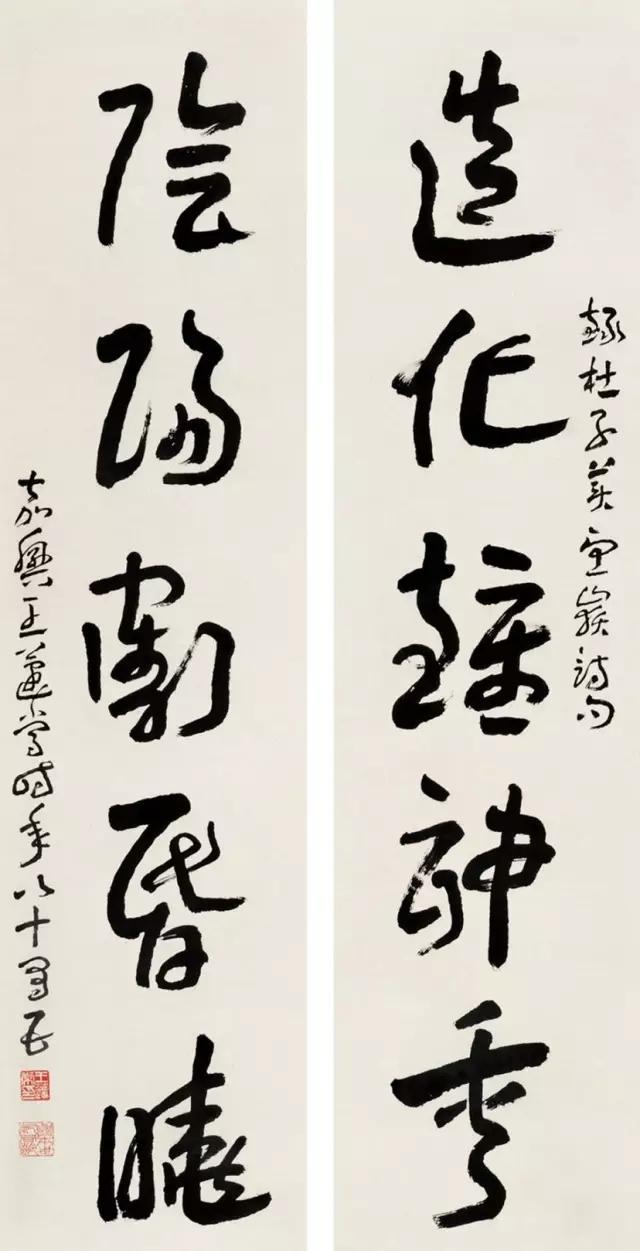 造化鍾神秀
録杜子美望嶽詩句
陰陽割昏曉
嘉興王蘧常時年八十有五